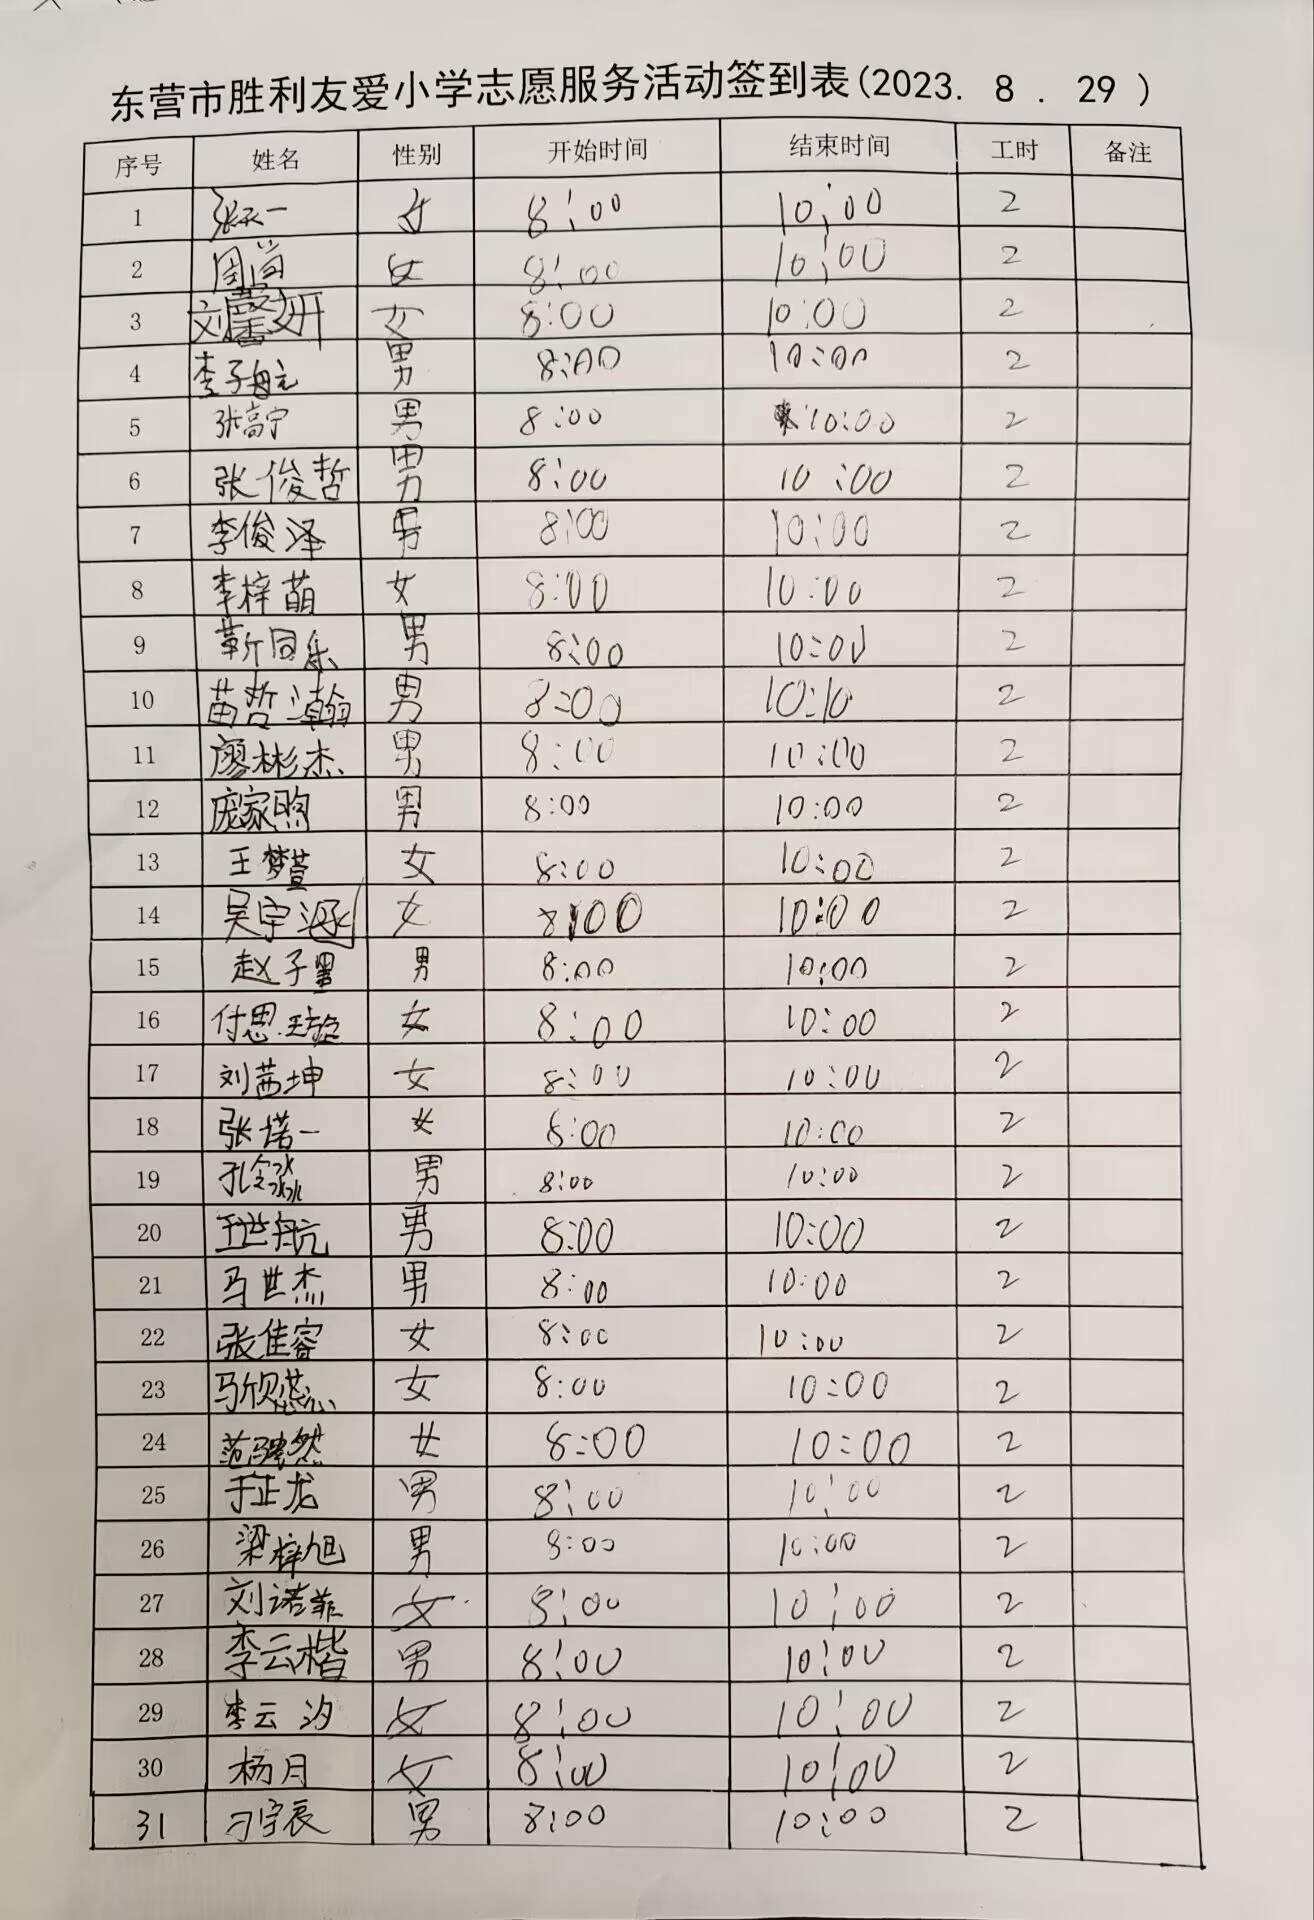 东营市胜利友爱小学志愿服务活动签到表(2023. 8 . 29 )
序号 姓名 性别 开始时间 结束时间 工时 备注
1 张天一 女 8:00 10:00 2
2 女 8:00 10:00 2
3 刘馨妍 女 8:00 10:00 2
4 李子航 男 8:00 10:00 2
5 张高宁 男 8:00 10:00 2
6 张俊哲 男 8:00 10:00 2
7 李俊泽 男 8:00 10:00 2
8 李梓萌 女 8:00 10:00 2
9 靳同乐 男 8:00 10:00 2
10 苗哲瀚 男 8:00 10:10 2
11 廖彬杰 男 8:00 10:00 2
12 庞家煦 男 8:00 10:00 2
13 王梦萱 女 8:00 10:00 2
14 吴宇涵 女 8:00 10:00 2
15 赵子墨 男 8:00 10:00 2
16 付思璇 女 8:00 10:00 2
17 刘茜坤 女 8:00 10:00 2
18 张诺一 女 8:00 10:00 2
19 孔令淼 男 8:00 10:00 2
20 王世航 男 8:00 10:00 2
21 马世杰 男 8:00 10:00 2
22 张佳睿 女 8:00 10:00 2
23 马欣慈 女 8:00 10:00 2
24 范骐然 女 8:00 10:00 2
25 于正龙 男 8:00 10:00 2
26 梁梓旭 男 8:00 10:00 2
27 刘诺菲 女 8:00 10:00 2
28 李云楷 男 8:00 10:00 2
29 李云汐 女 8:00 10:00 2
30 杨月 女 8:00 10:00 2
31 刁宇辰 男 8:00 10:00 2